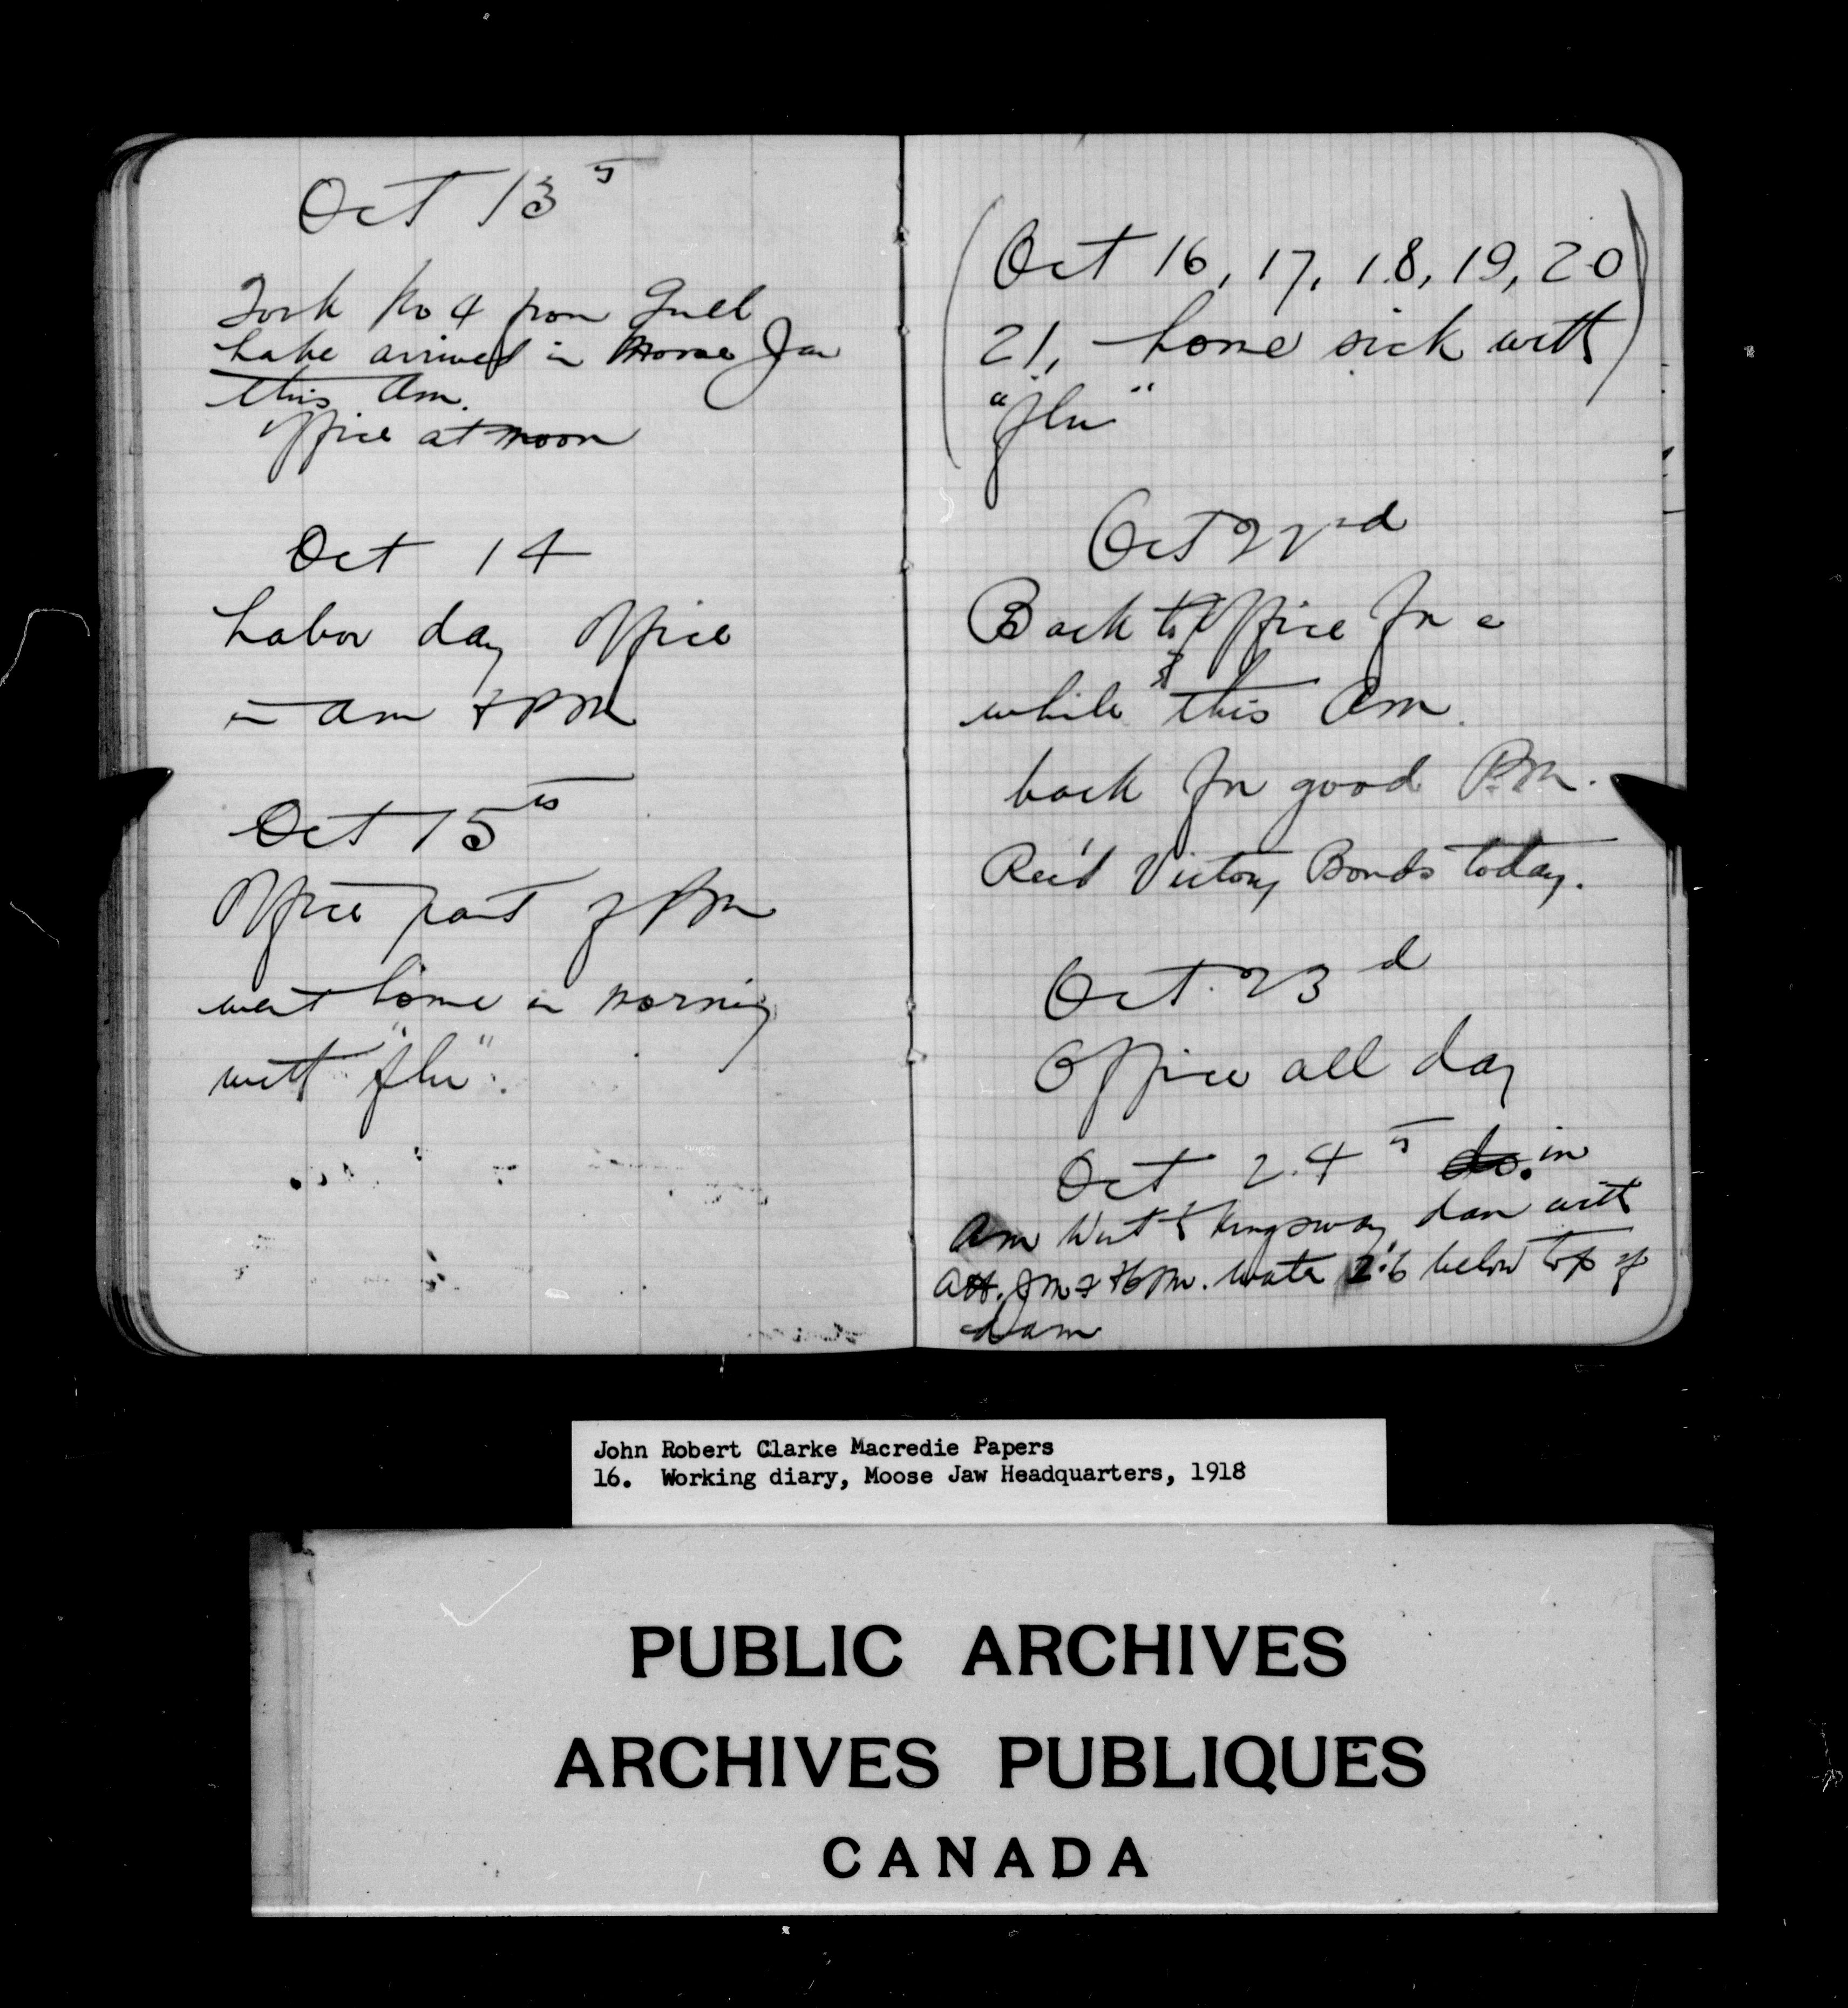 Oct 13th
Took No 4 from Gull
Lake arrived in Moose Jaw
this am.
Office at noon
Oct 14
Labor day Office
in am & PM
Oct 15th
Office part of PM
went home in morning
with "flu".
(Oct 16, 17, 18, 19, 20
21, home sick with)
"flu"
Oct 22nd
Back to Office for a
while this am.
back for good P.M.
Rec'd Victory Bonds today.
Oct. 23d
Office all day
Oct 24th do. in
am Went to Kingsway dam with
water 2'.6 below top of
dam
John Robert Clarke Macredie Papers
16. Working diary, Moose Jaw Headquarters, 1918
PUBLIC ARCHIVES
ARCHIVES PUBLIQUES
CANADA